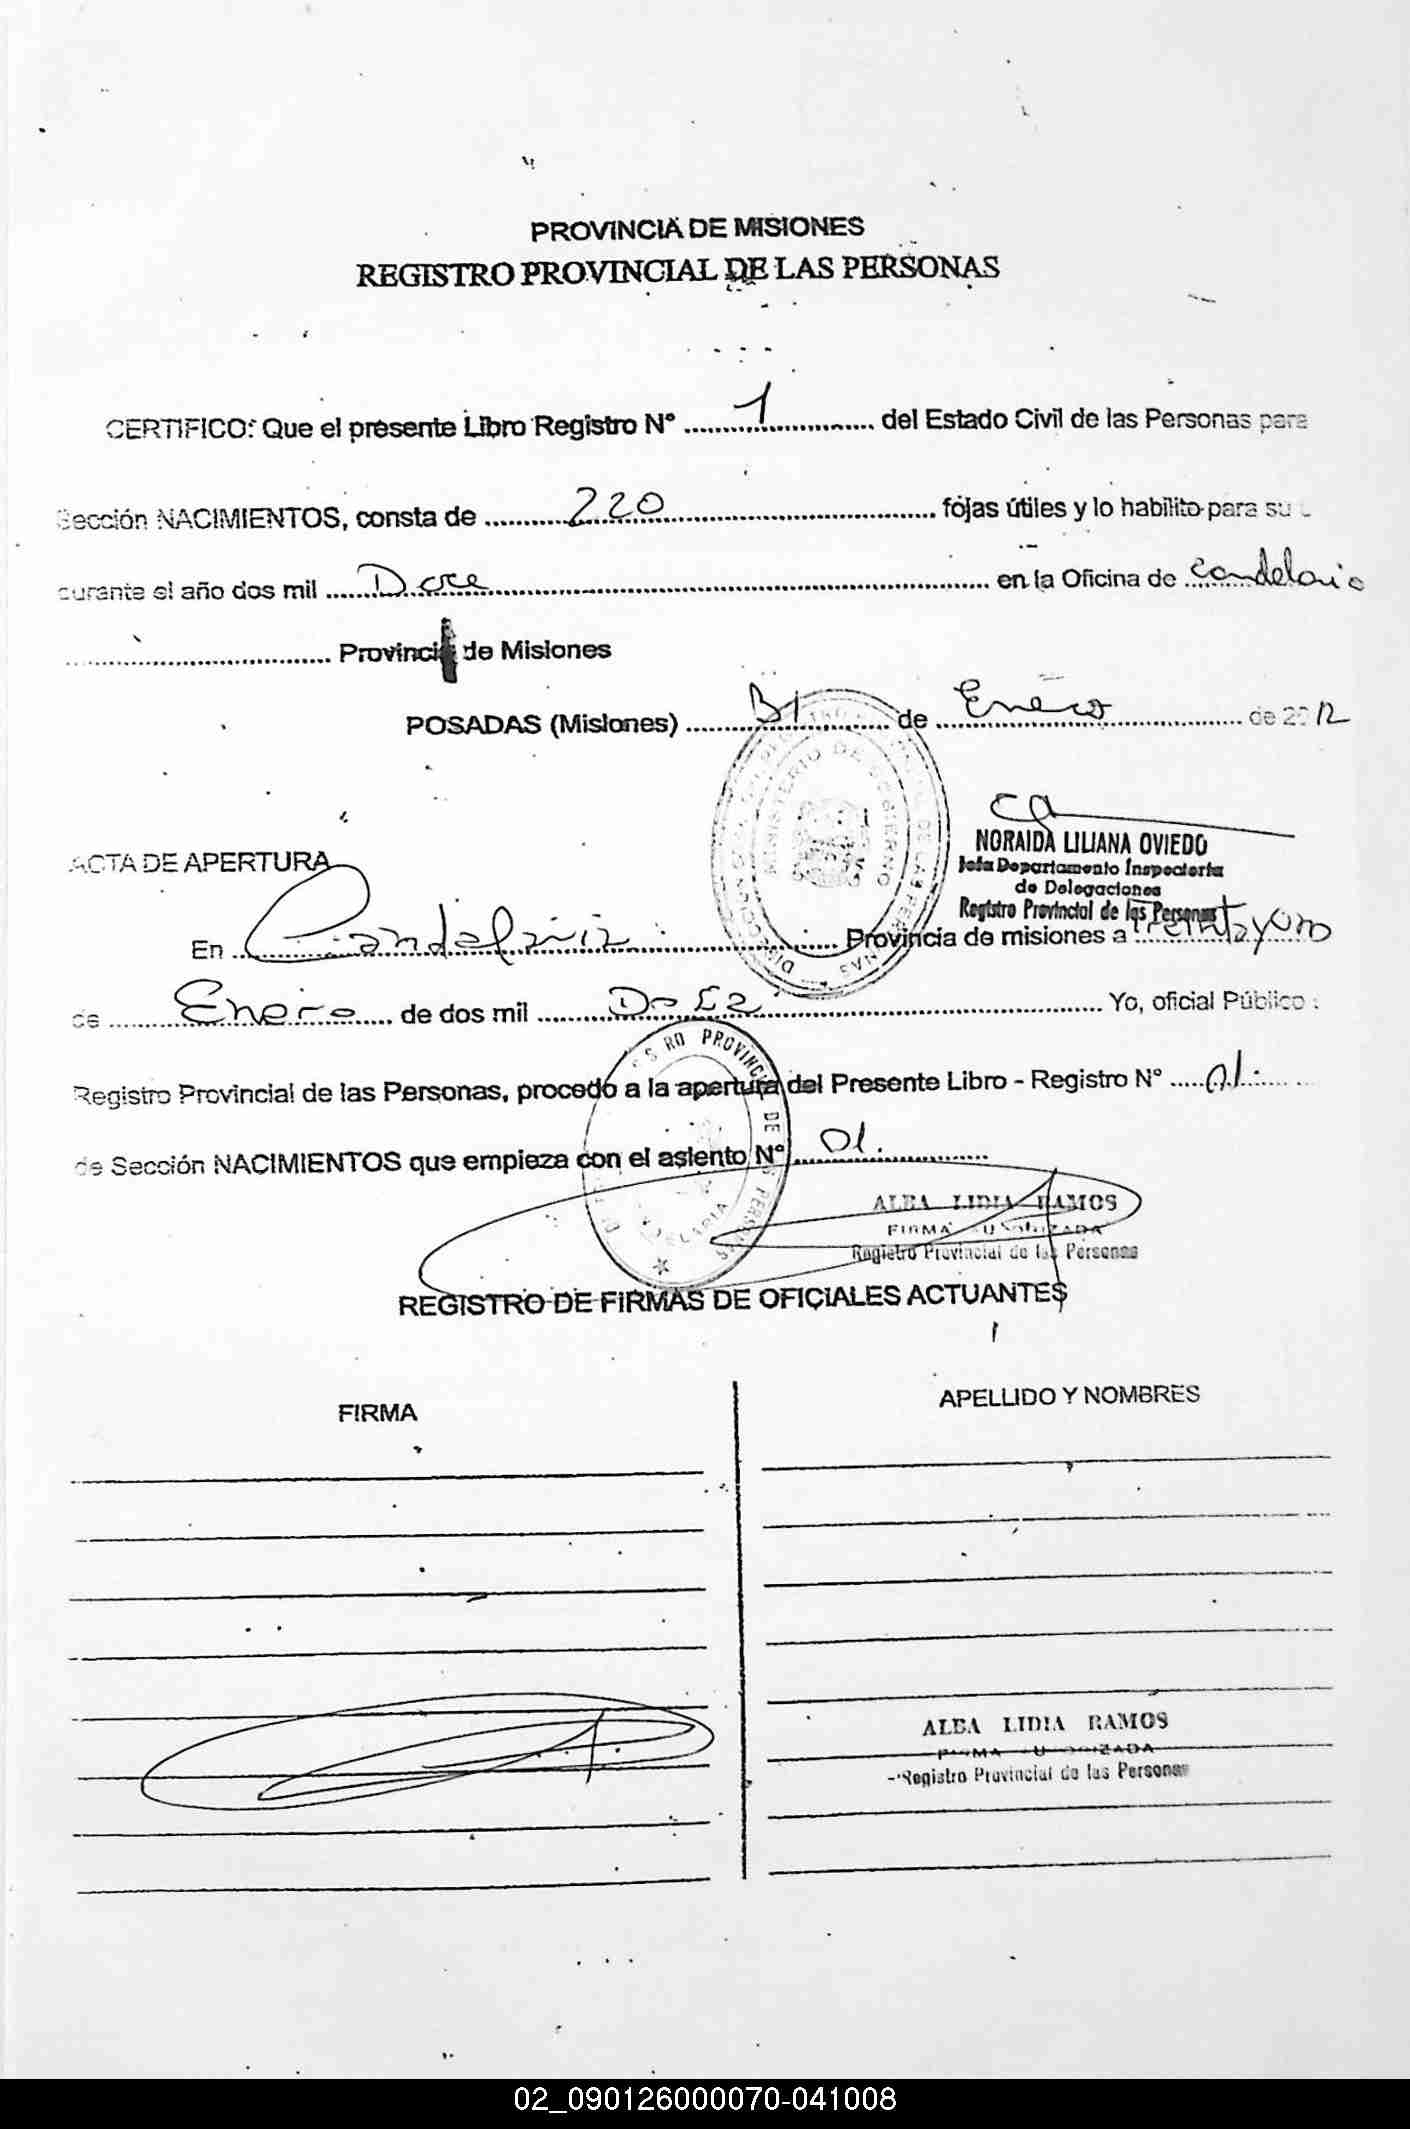 PROVINCIA DE MISIONES
REGISTRO PROVINCIAL DE LAS PERSONAS
CERTIFICO: Que el presente Libro Registro N° ........1........ del Estado Civil de las Personas para
Sección NACIMIENTOS, consta de ........220........ fojas útiles y lo habilito para su
durante el año dos mil ....Doce.... en la Oficina de ..Candelaria
........ Provincia de Misiones
POSADAS (Misiones) ........31........ de ..Enero........ de 2012
NORAIDA LILIANA OVIEDO
Jefa Departamento Inspectoria
de Delegaciones
Registro Provincial de las Personas
ACTA DE APERTURA
En ..Candelaria........ Provincia de misiones a ..treintayuno
de ........Enero..... de dos mil ........Doce........ Yo, oficial Público
Registro Provincial de las Personas, procedo a la apertura del Presente Libro - Registro N° .....01.....
de Sección NACIMIENTOS que empieza con el asiento N° ...01.........
ALBA LIDIA RAMOS
FIRMA AUTORIZADA
Registro Provincial de las Personas
REGISTRO DE FIRMAS DE OFICIALES ACTUANTES
FIRMA
APELLIDO Y NOMBRES
ALBA LIDIA RAMOS
FIRMA AUTORIZADA
Registro Provincial de las Personas
MINISTERIO DE GOBIERNO
02_090126000070-041008